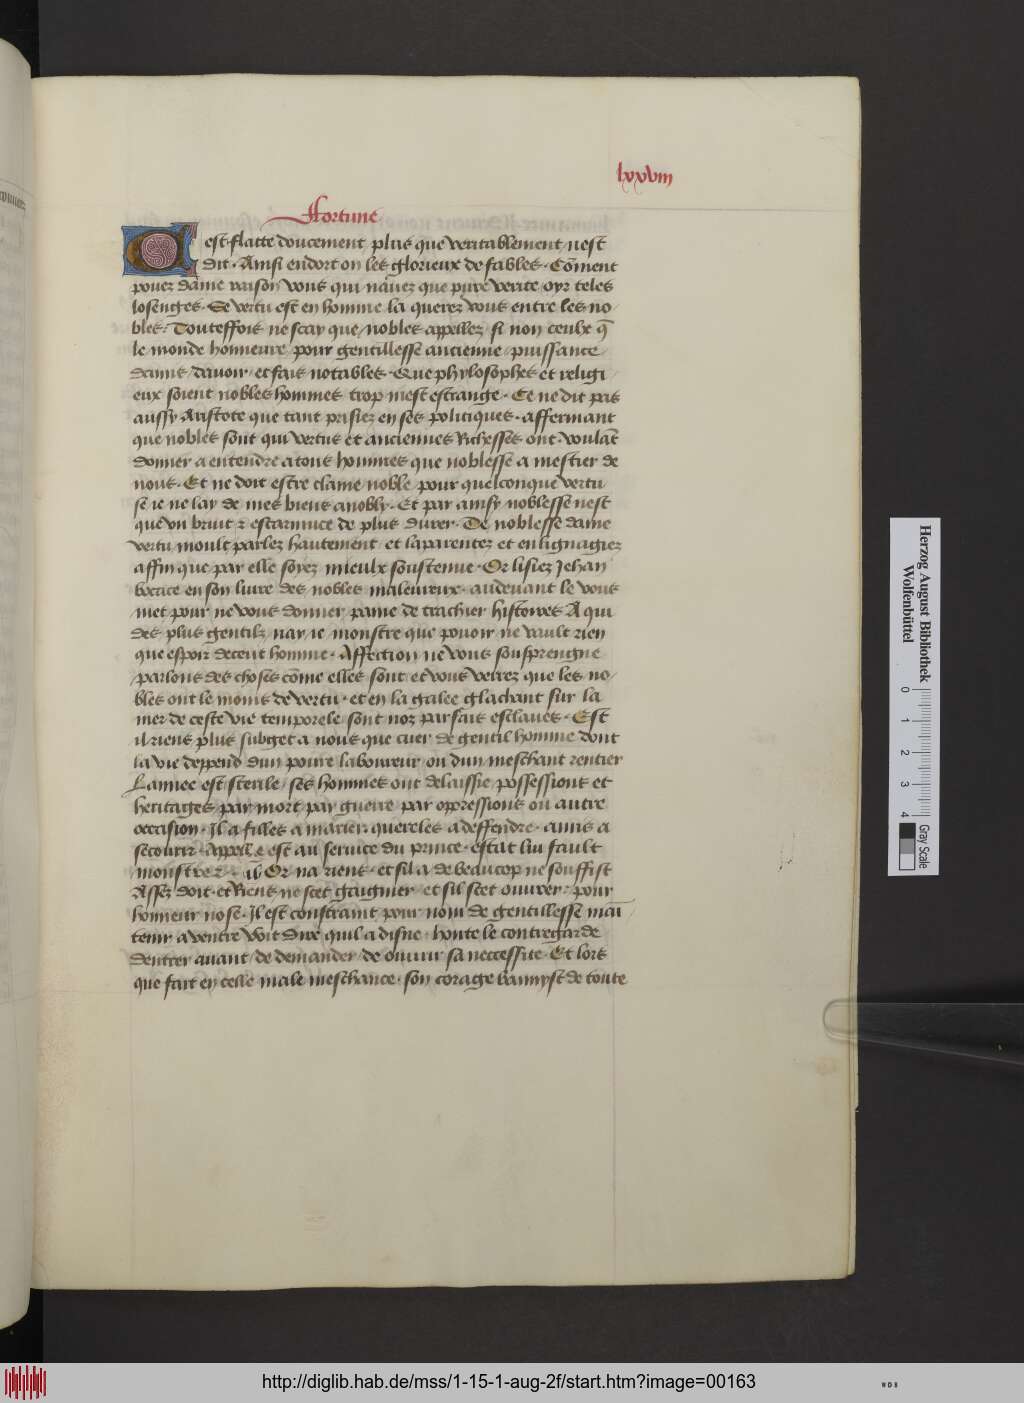 lxxviii
Fortune
Cest flatte doucement plus que veritablement nest
dit. Ainsi endort on les glorieux de fables. Cōment
pouez dame raison vous qui nauez que pure verite oyr teles
losenges. Se vertu est en homme la querez vous entre les no
bles. Touteffois ne scay que nobles appellez si non ceulx q̄
le monde honneure pour gentillesse ancienne puissance
damis dauoir et fais notables. Que phylosophes et religi
eux soient nobles hommes trop mest estrange. Ce ne dit pas
aussy Aristote que tant prisiez en ses politiques. affermant
que nobles sont qui vertus et anciennes Richesses ont. voulāt
donner a entendre a tous hommes que noblesse a mestier de
nous. Et ne doit estre clame noble pour quelconque vertu
se ie ne lay de mes biens anobly. Et par ainsy noblesse nest
que vn bruit et de plus durer. De noblesse dame
vertu moult parlez hautement et laparentez et enlignagiez
affin que par elle soyez mieulx soustenue. Or lisiez Jehan
bocace en son liure des nobles maleureux. audeuant le vous
met pour ne vous donner paine de trachier histoires A qui
des plus gentilz nay ie monstre que pouoir ne vault rien
que espoir deceut homme. Affection ne vous sousprengne
parlons des choses cōme elles sont et vous verrez que les no
bles ont le moins de vertu. et en la galee glachant sur la
mer de ceste vie temporele sont noz parfais esclaues. Est
il riens plus subget a nous que cuer de gentil homme dont
la vie deppend dun poure laboureur ou dun meschant rentier
Lannee est sterile ses hommes ont delaissie possessions et
heritages par mort par guerre par oppressions ou autre
occasion. Il a filles a marier quereles a deffendre. amis a
secourir. Appelle est au seruice du prince. estat luy fault
monstrer. il Or na riens. et sil a de beaucop ne souffist
Assez doit. et Riens ne scet gaignier. et sil scet ouurer. pour
honneur nose. Il est constraint pour nom de gentillesse mai
tenir a ventre voit dire quil a disne. honte le contregarde
dentrer auant de demander de ouurir sa neccessite. Et lors
que fait en celle male meschance. son corage bannyst de toute
Herzog August Bibliothek
Wolfenbüttel
0 1 2 3 4
Gray Scale
http://diglib.hab.de/mss/1-15-1-aug-2f/start.htm?image=00163